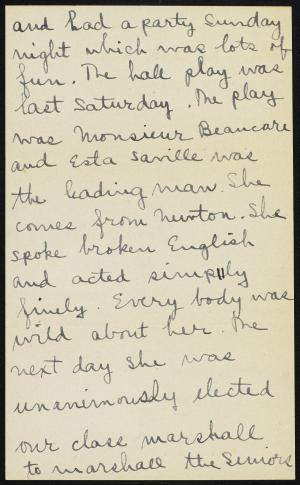 and had a party Sunday
night which was lots of
fun. The hall play was
last Saturday. The play
was Monsieur Beaucare
and Esta Saville was
the leading man. She
comes from Newton. She
spoke broken English
and acted simply
finely. Every body was
wild about her. The
next day she was
unanimously elected
our class marshall
to marshall the Seniors